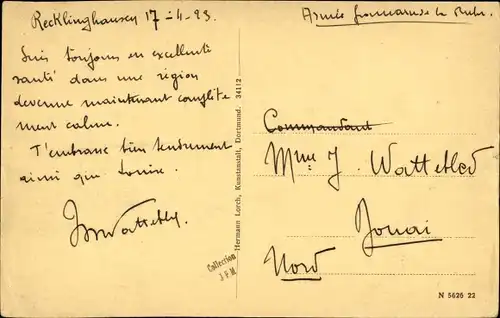 Recklinghausen 17-4-23.
Armée française de la Ruhr.
Suis toujours en excellente
santé dans une région
devenue maintenant complète
ment calme.
T'embrasse bien tendrement
ainsi que Louise.
JWattebled
Commandant
Mme J. Wattebled
Douai
Nord
Hermann Lorch, Kunstanstalt, Dortmund. 34112
Collection
J.F.M.
N 5626 22